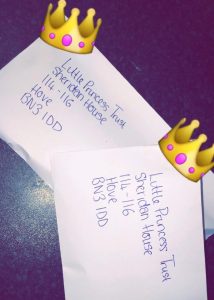 Little Princess Trust
Sheridan House
114-116
Hove
BN3 1DD
Little Princess Trust
Sheridan House
114-116
Hove
BN3 1DD